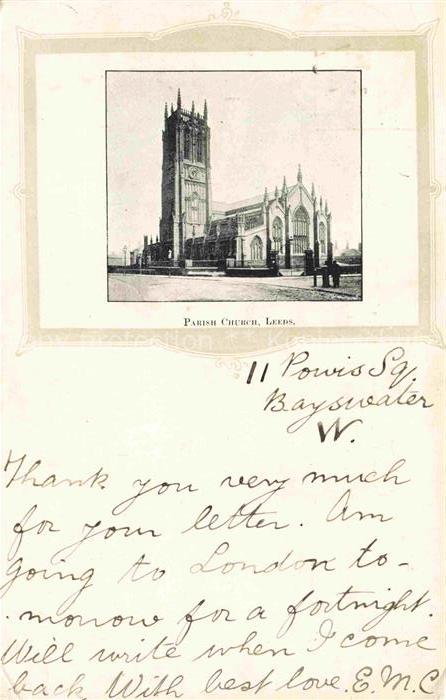 PARISH CHURCH, LEEDS,
11 Powis Sq.
Bayswater
W.
Thank you very much
for your letter. Am
going to London to-
morrow for a fortnight.
Will write when I come
back. With best love E.M.C